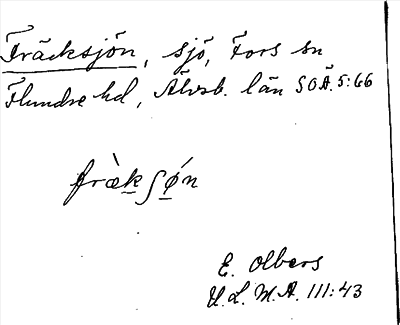 Träcksjön, sjö, Fors sn
Flundre hd, Älvsb. län SOÄ. 5:66
fræ̀kʃǿn
E. Olbers
U.L.M.A. 111:43